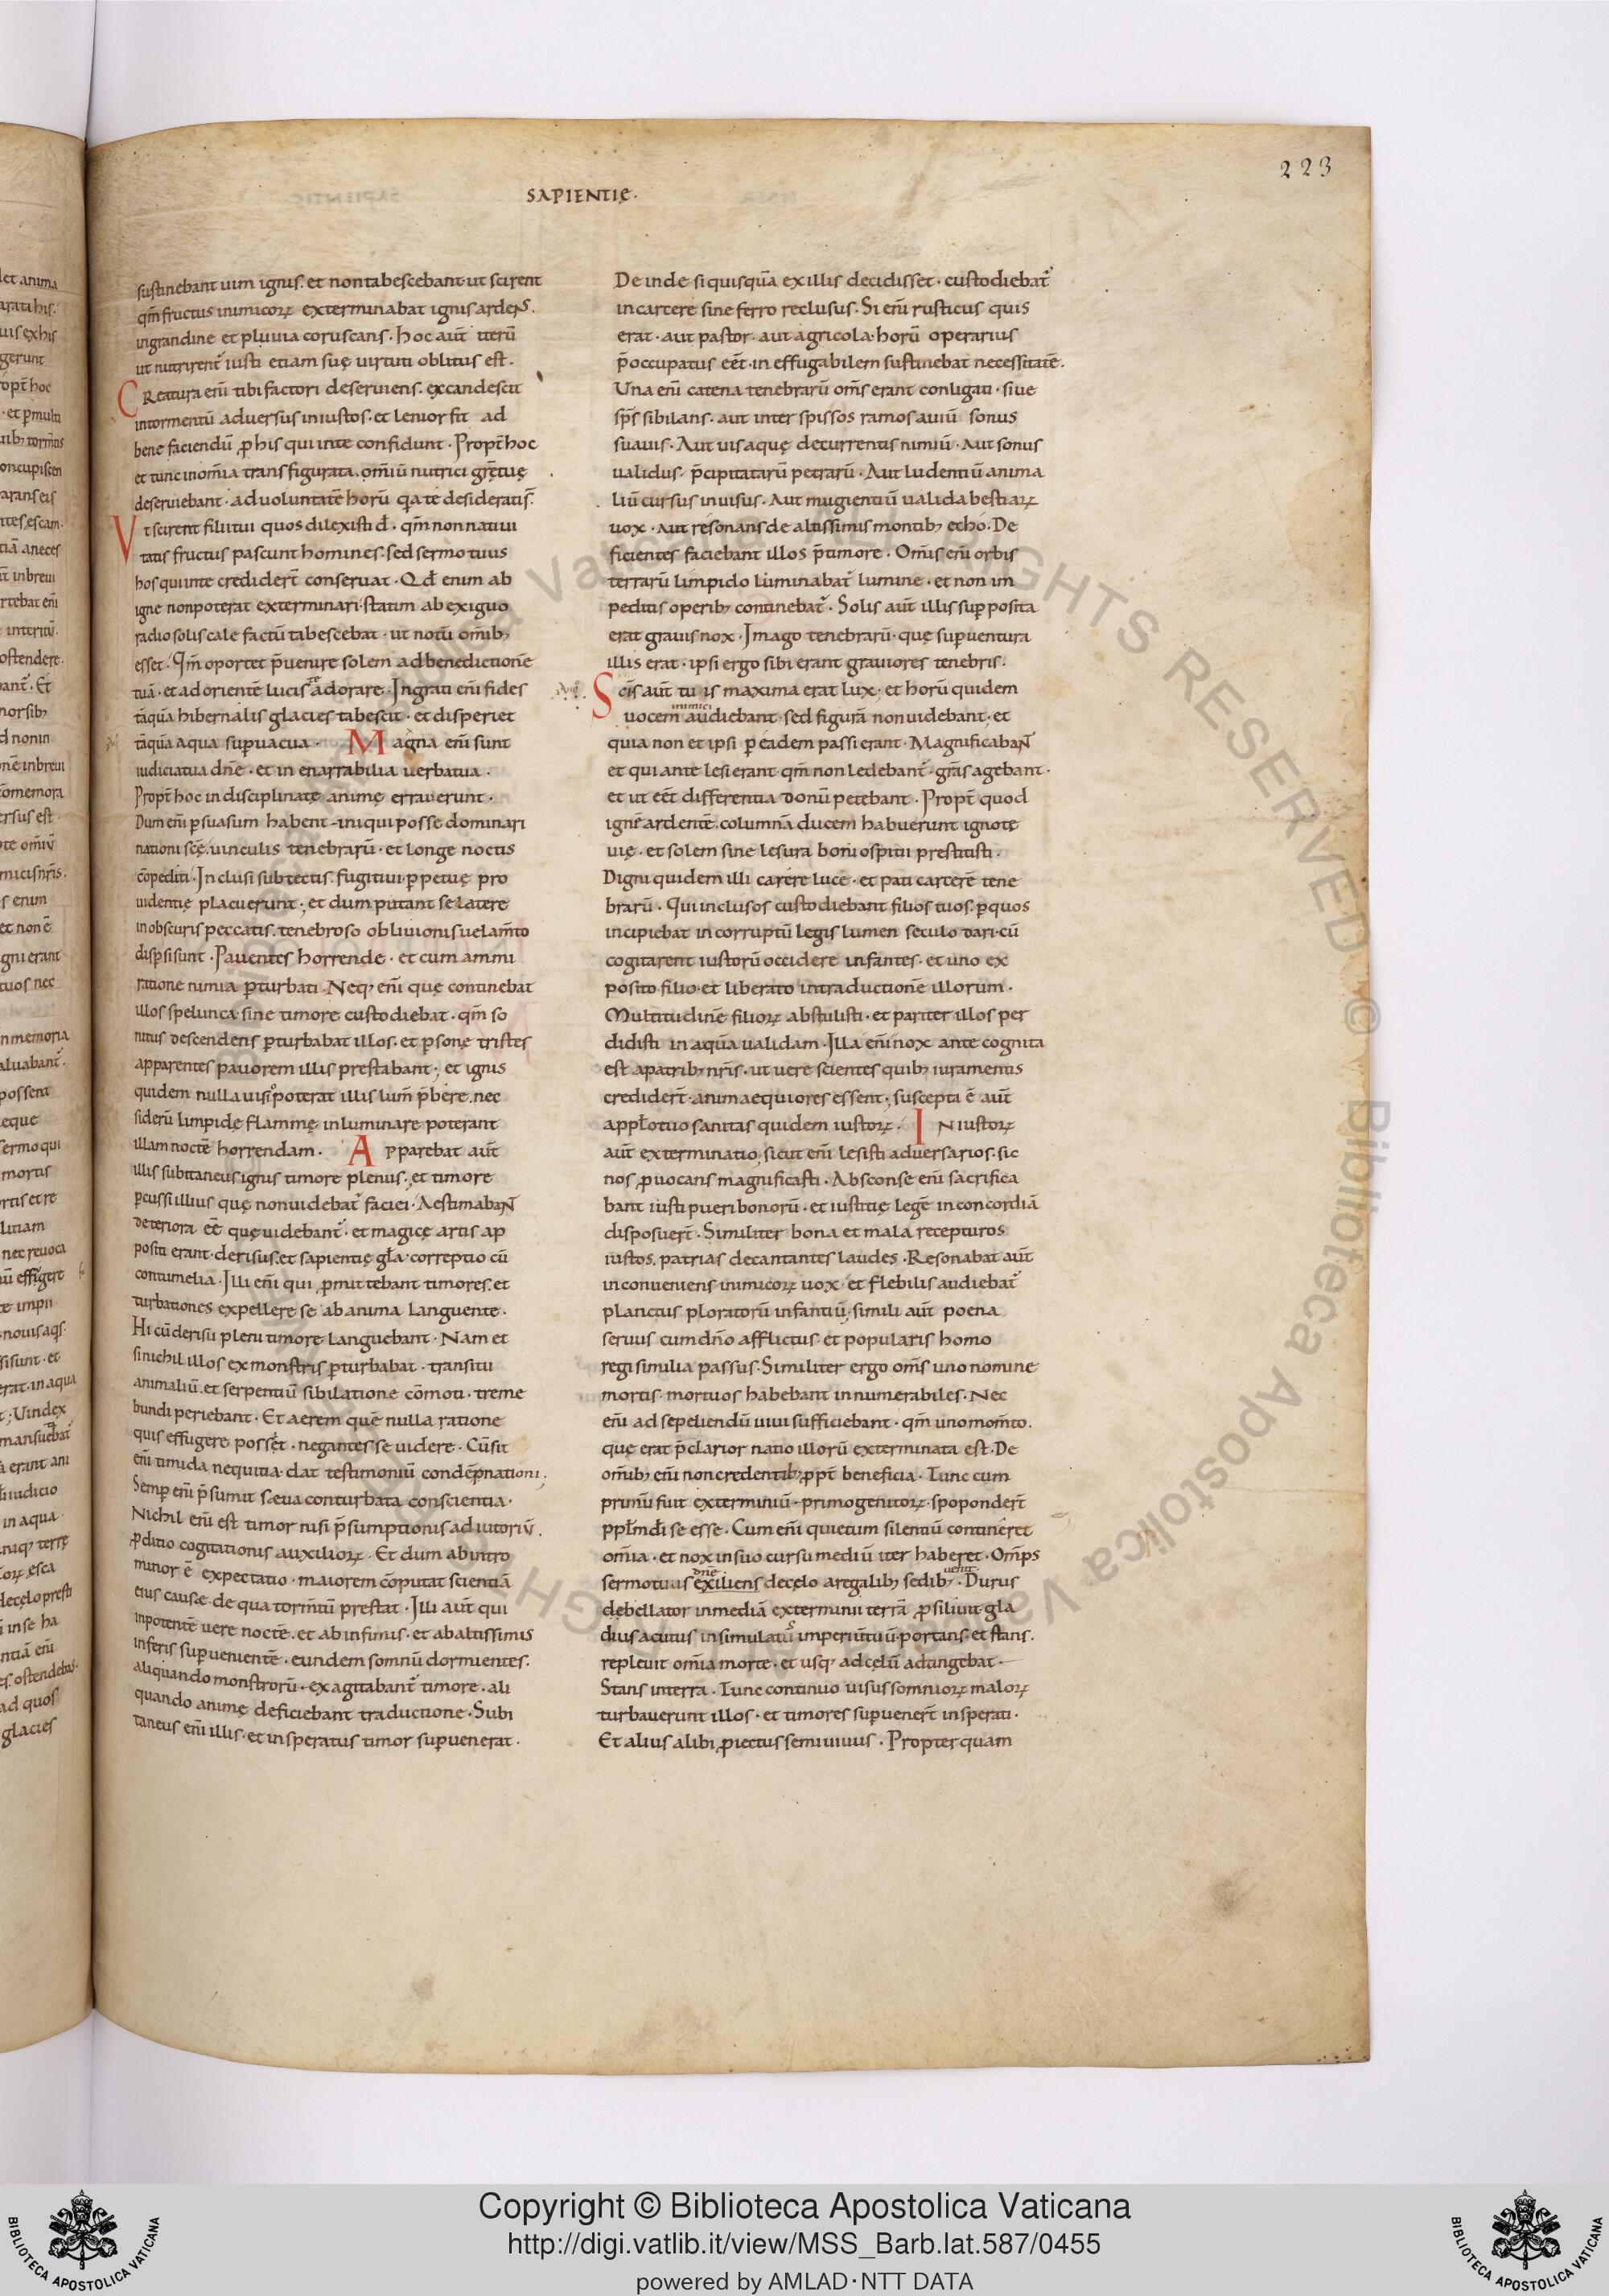 223
SAPIENTIĘ.
sustinebant uim ignis. et non tabescebant. ut scirent
qm̄ fructus inimicoꝝ exterminabat ignis ardens.
in grandine et pluuia coruscans. hoc aut̄ iterū
ut nutrirent᷑ iusti etiam suę uirtuti oblitus est.
CReatura eni̅ tibi factori deseruiens. excandescit
in tormentū aduersus iniustos. et lenior fit ad
bene faciendū ꝑ his qui in te confidunt. Propt̄ hoc
et tunc in om̄ia transfigurata. om̄iū nutrici gr̄ę tuę
deseruiebant. ad uoluntatē horū q̇ a te desideratiſ̄.
Vt scirent filii tui quos dilexisti dſ̄. qm̄ non natiui
tatis fructus pascunt homines. sed sermo tuus
hos qui in te credidert̄ conseruat. Qđ enim ab
igne non poterat exterminari. statim ab exiguo
radio solis cale factū tabescebat. ut notū om̄ibꝫ
esset. Qm̄ oportet p̄uenire solem ad benedictionē
tuā. et ad orientē lucis te adorare. Ingrati eni̅ fides
tāquā hibernalis glacies tabescit. et disperiet
tāquā aqua sup̄uacua. Magna eni̅ sunt
iudicia tua dn̄e. et in enarrabilia uerba tua.
Propt̄ hoc in disciplinatę animę errauerunt.
Dum eni̅ ꝑsuasum habent iniqui posse dominari
nationi scę̄. uinculis tenebrarū. et longe noctis
cōpediti. Inclusi sub tectis. fugitiui ꝑpetuę pro
uidentię placuerunt; et dum putant se latere
in obscuris peccatis. tenebroso obliuionis uelam̄to
dispsi sunt. Pauentes horrende. et cum ammi
ratione nimia ꝑturbati. Neqꝫ eni̅ que continebat
illos spelunca. sine timore custodiebat. qm̄ so
nitus descendens ꝑturbabat illos. et ꝑsonę tristes
apparentes pauorem illis prestabant; et ignis
quidem nulla uis poterat illis lum̄ p̄bere. nec
siderū limpidę flammę inluminare poterant
illam noctē horrendam. Apparebat aut̄
illis subitaneus ignis timore plenus; et timore
ꝑcussi illius quę non uidebat᷑ faciei. Aestimabant
deteriora eē̄ quę uidebant᷑. et magicę artis ap
positi erant derisus. et sapientię gl̄a. correptio cū
contumelia. Illi eni̅ qui ꝓmittebant timores. et
turbationes expellere se ab anima languente.
Hi cū derisu pleni timore languebant. Nam et
si nichil illos ex monstris ꝑturbabat. transitu
animaliū. et serpentiū sibilatione cōmoti. treme
bundi periebant. Et aerem quē nulla ratione
quis effugere posset. negantes se uidere. Cū sit
eni̅ timida nequitia. dat testimoniū condēpnationi;
Semp eni̅ p̄sumit sæua conturbata conscientia.
Nichil eni̅ est timor nisi p̄sumptionis adiutoriū.
ꝓditio cogitationis auxilioꝝ. Et dum ab intro
minor ē expectatio. maiorem cōputat scientiā
eius causæ. de qua torm̄tū prestat. Illi aut̄ qui
inpotentē uere noctē. et ab infimis. et ab altissimis
inferis sup̄uenientē. eundem somnū dormientes.
aliquando monstrorū. exagitabant᷑ timore. ali
quando animę deficiebant traductione. Subi
taneus eni̅ illis. et insperatus timor sup̄uenerat.
De inde si quisquā ex illis decidisset. custodiebat᷑
in carcere sine ferro reclusus. Si eni̅ rusticus quis
erat. aut pastor. aut agricola. horū operarius
p̄occupatus eēt̄. in effugabilem sustinebat necessitatē.
Una eni̅ catena tenebrarū om̄s erant conligati. siue
sp̄s sibilans. aut inter spissos ramos auiū sonus
suauis. Aut uis aquę decurrentis nimiū. Aut sonus
ualidus. p̄cipitatarū petrarū. Aut ludentiū anima
liū cursus inuisus. Aut mugientiū ualida bestiaꝝ
uox. Aut resonans de altissimis montibꝫ echo. De
ficientes faciebant illos p̄ timore. Om̄is eni̅ orbis
terrarū limpido luminabat᷑ lumine. et non im
peditis operibꝫ continebat᷑. Solis aut̄ illis sup̄posita
erat grauis nox. Imago tenebrarū. quę sup̄uentura
illis erat. ipsi ergo sibi erant grauiores tenebris.
Scīs aut̄ tuis maxima erat lux. et horū quidem
inimici
uocem audiebant. sed figurā non uidebant. et
quia non et ipsi ꝑ eadem passi erant. Magnificabant
et qui ante lesi erant. qm̄ non ledebant᷑. gr̄as agebant.
et ut eēt̄ differentia donū petebant. Propt̄ quod
ignē ardentē. columnā ducem habuerunt ignotę
uię. et solem sine lesura boni ospitii prestitisti.
Digni quidem illi carere luce. et pati carcerē tene
brarū. Qui inclusos custodiebant filios tuos. ꝑ quos
incipiebat incorruptū legis lumen seculo dari. cū
cogitarent iustorū occidere infantes. et uno ex
posito filio. et liberato in traductionē illorum.
Multitudinē filioꝝ abstulisti. et pariter illos per
didisti in aquā ualidam. Illa eni̅ nox ante cognita
est a patribꝫ nr̄is. ut uere scientes quibꝫ iuramentis
credidert̄. anima equiores essent; suscepta ē aut̄
appl̄o tuo sanitas quidem iustoꝝ. INiustoꝝ
aut̄ exterminatio; sicut eni̅ lesisti aduersarios. sic
nos ꝓuocans magnificasti. Absconse eni̅ sacrifica
bant iusti pueri bonorū. et iustitię legē in concordiā
disposuert̄. Similiter bona et mala recepturos
iustos. patrias decantantes laudes. Resonabat aut̄
inconueniens inimicoꝝ uox. et flebilis audiebat᷑
planctus ploratorū infantiū; simili aut̄ poena
seruus cum dn̄o afflictus. et popularis homo
regi similia passus. Similiter ergo om̄s uno nomine
mortis. mortuos habebant innumerabiles. Nec
eni̅ ad sepeliendū uiui sufficiebant. qm̄ uno mom̄to.
quę erat p̄clarior natio illorū exterminata est. De
om̄ibꝫ eni̅ non credentibꝫ ꝓpt̄ beneficia. Tunc cum
primū fuit exterminiū primogenitoꝝ. spopondert̄
ppl̄m dī se esse. Cum eni̅ quietum silentiū contineret
om̄ia. et nox in suo cursu mediū iter haberet. Om̄ps
dn̄e uenit
sermo tuus exiliens de cęlo a regalibꝫ sedibꝫ. Durus
debellator in mediā exterminii terrā ꝓsiliuit. gla
dius acutus insimulatū imperiū tuū portans. et stans.
repleuit om̄ia morte. et usqꝫ ad cęlū adtingebat.
Stans in terra. Tunc continuo uisus somnioꝝ maloꝝ
turbauerunt illos. et timores sup̄uenert̄ insperati.
Et alius alibi ꝓiectus semiuiuus. Propter quam
Copyright © Biblioteca Apostolica Vaticana
http://digi.vatlib.it/view/MSS_Barb.lat.587/0455
powered by AMLAD·NTT DATA
BIBLIOTECA APOSTOLICA VATICANA
BIBLIOTECA APOSTOLICA VATICANA